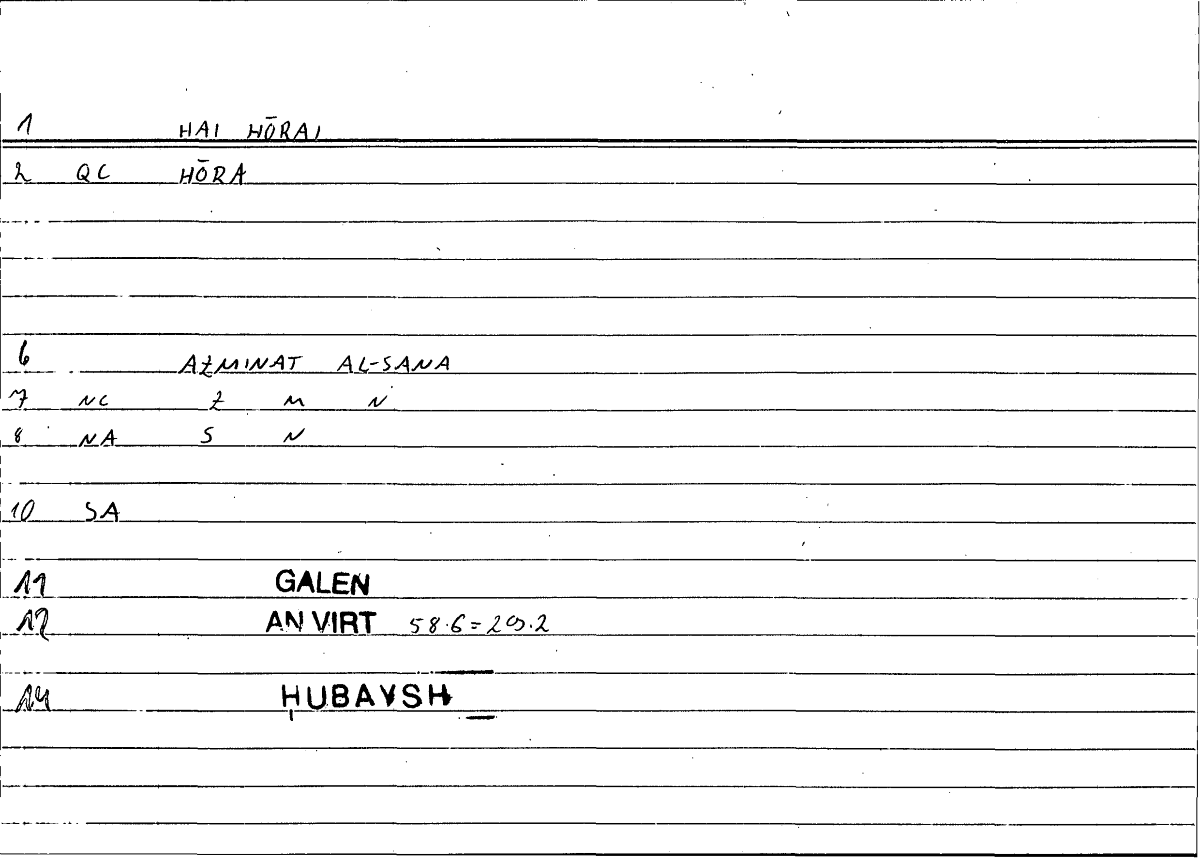 1 HAI HŌRAI
2 QC HŌRA
6 AZMINAT AL-SANA
7 NC Z M N
8 NA S N
10 SA
11 GALEN
12 AN VIRT 58.6=20.2
14 ḤUBAYSH